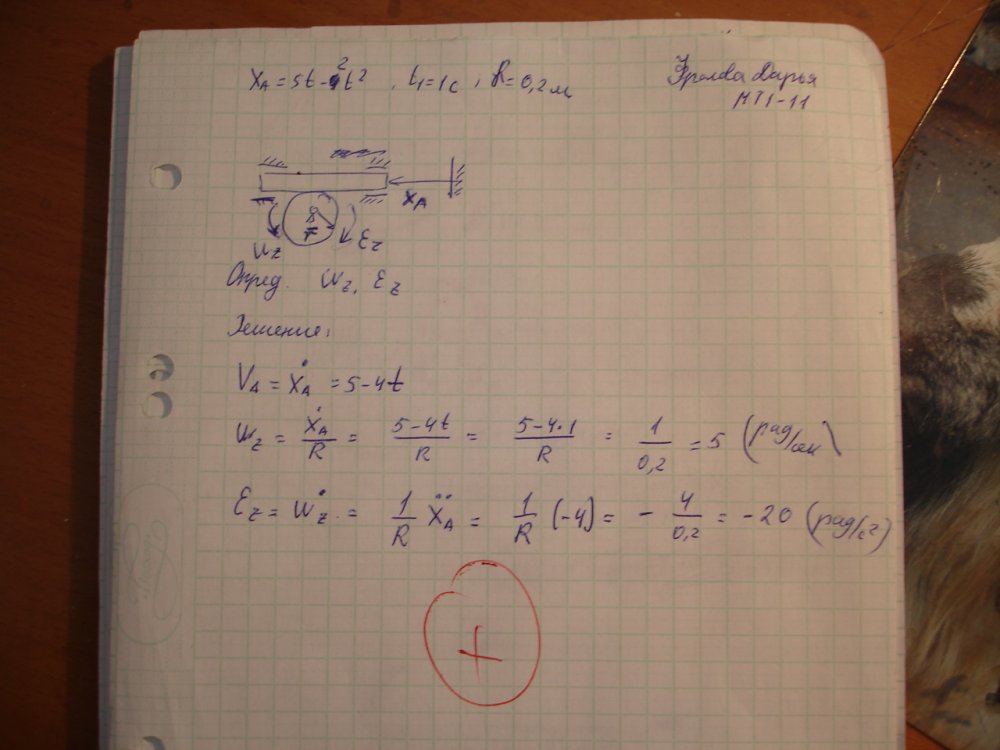 X_A = 5t - 2t² , t₁ = 1с , R = 0,2 м
Фролова Дарья
МТ1-11
X_A
R
ω_z
ε_z
Опред. ω_z, ε_z
Решение:
V_A = Ẋ_A = 5 - 4t
ω_z = Ẋ_A/R = (5-4t)/R = (5-4·1)/R = 1/0,2 = 5 (рад/сек)
ε_z = ω̇_z = 1/R Ẍ_A = 1/R (-4) = - 4/0,2 = -20 (рад/с²)
+